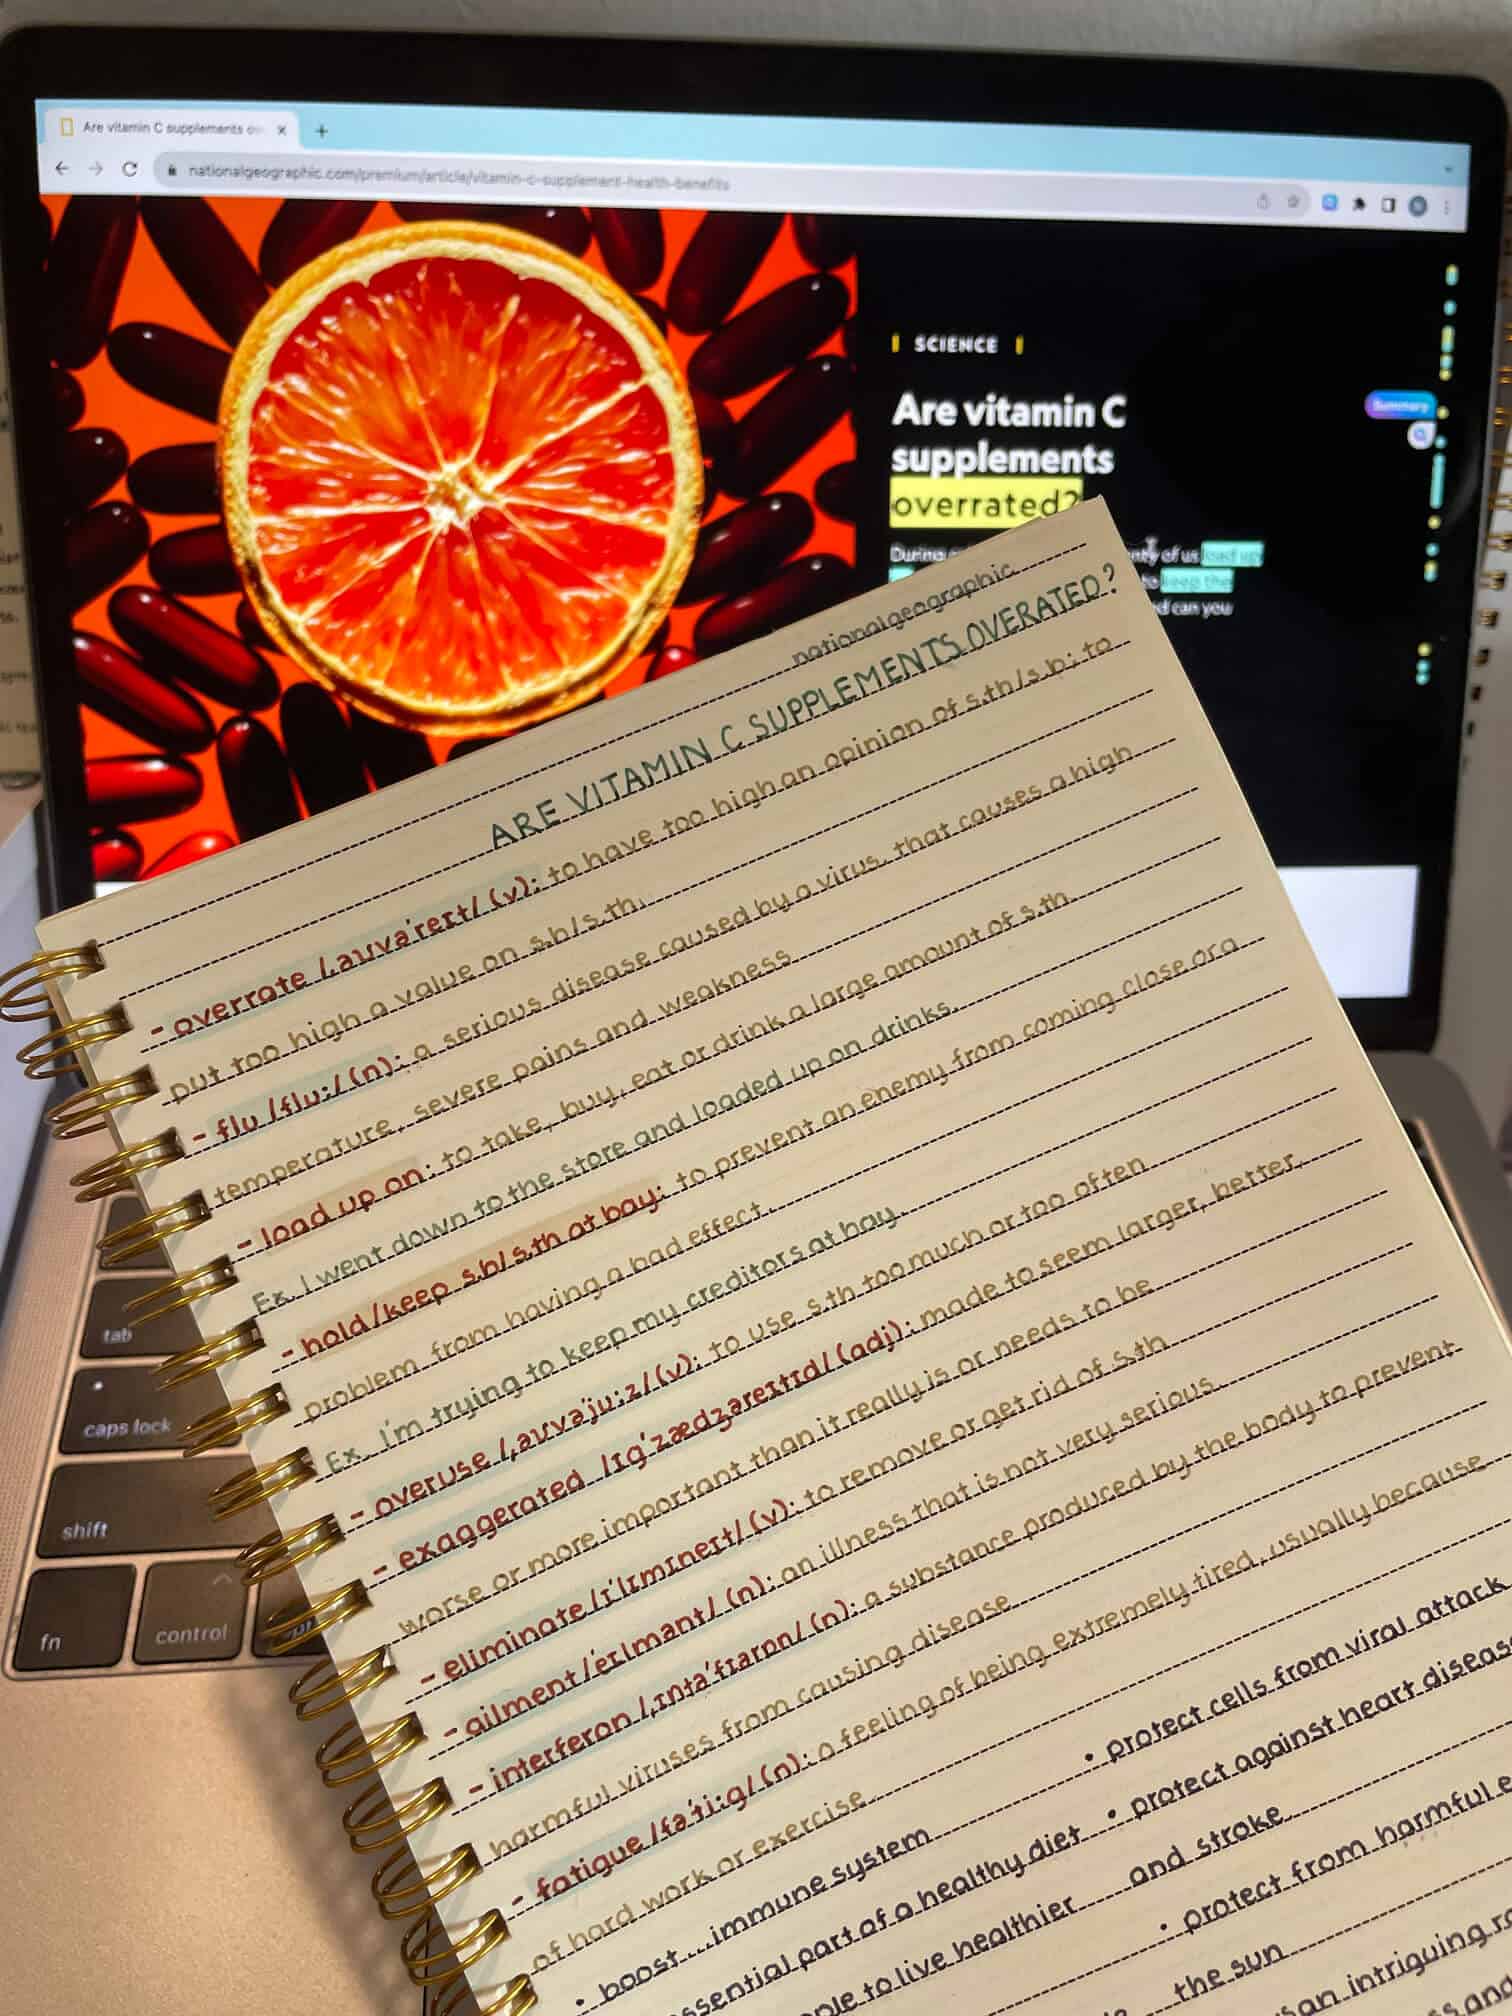 Are vitamin C supplements ov
nationalgeographic.com/premium/article/vitamin-c-supplement-health-benefits
SCIENCE
Are vitamin C
supplements
overrated?
Summary
During
of us load up
to keep the
d can you
nationalgeographic
ARE VITAMIN C SUPPLEMENTS OVERATED?
- overrate /ˌəʊvəˈreɪt/ (v): to have too high an opinion of s.th/s.b; to
put too high a value on s.b/s.th.
- flu /fluː/ (n): a serious disease caused by a virus, that causes a high
temperature, severe pains and weakness
- load up on: to take, buy, eat or drink a large amount of s.th
Ex. I went down to the store and loaded up on drinks.
- hold/keep s.b/s.th at bay: to prevent an enemy from coming close or a
problem from having a bad effect.
Ex. I'm trying to keep my creditors at bay
- overuse /ˌəʊvəˈjuːz/ (v): to use s.th too much or too often
- exaggerated /ɪɡˈzædʒəreɪtɪd/ (adj): made to seem larger, better,
worse or more important than it really is or needs to be
- eliminate /ɪˈlɪmɪneɪt/ (v): to remove or get rid of s.th
- ailment /ˈeɪlmənt/ (n): an illness that is not very serious
- interferon /ˌɪntəˈfɪərɒn/ (n): a substance produced by the body to prevent
harmful viruses from causing disease
- fatigue /fəˈtiːɡ/ (n): a feeling of being extremely tired, usually because
of hard work or exercise
• boost...immune system
essential part of a healthy diet
ple to live healthier
• protect cells from viral attack
• protect against heart diseas
and stroke
• protect from harmful e
the sun
an intriguing ro
and
tab
caps lock
shift
fn
control